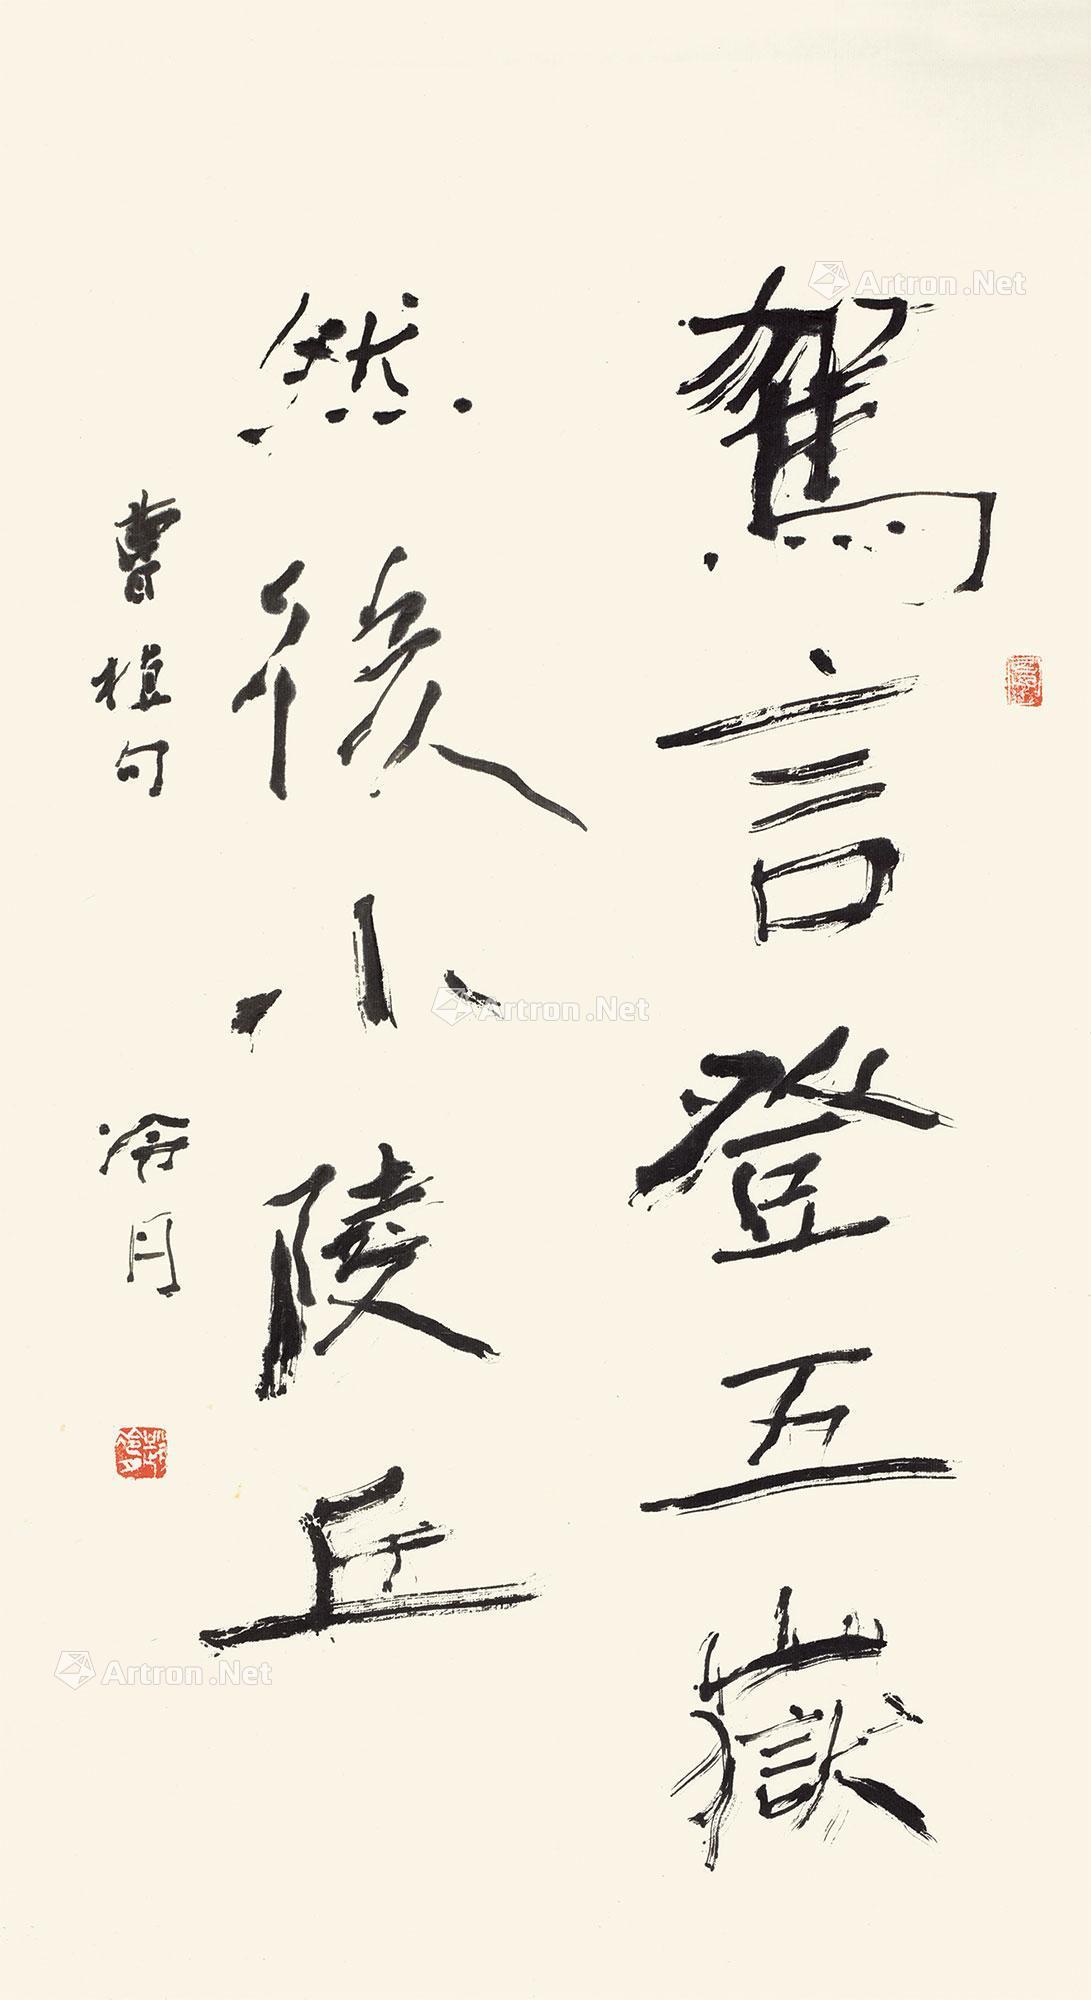 駕言登五嶽
然後小陵丘
曹植句
冷月
Artron.Net
Artron.Net
Artron.Net